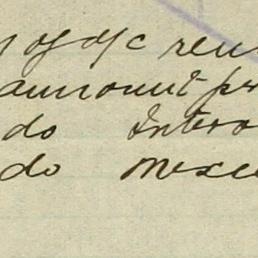 y of a/c ren
amount pr
do Intero
do Mexi